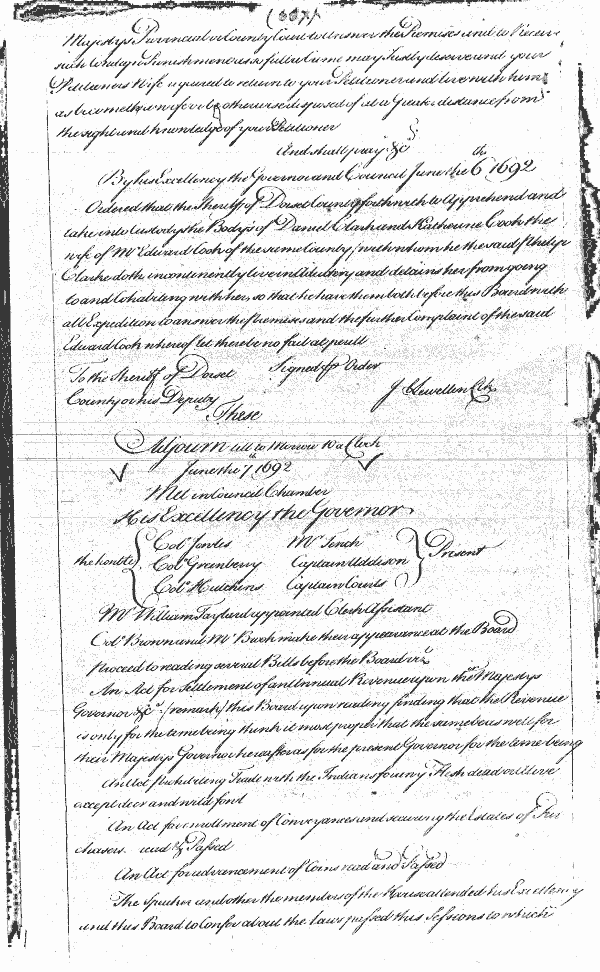 Majestys Provincial or County Court to answer the Premises and to Receive
such Condign Punishment as a full a Crime may Justly deserve and your
Petitioners Wife injoyned to return to your Petitioner and live with him
as becometh a wife or be otherwise disposed of at a Greater distance from
the sight and knowledge of your Petitioner
And shall pray &c
By his Excellency the Governor and Council June the 6th 1692
Ordered that the Sheriff of Dorset County forthwith to Apprehend and
take into Custody the Bodys of Daniel Clark and Katherine Cook the
wife of Mr Edward Cook of the same County (with whom he the said Philip
Clarke doth incontinently live in Adultery and detains her from going
to and Cohabiting with her, so that he have them both before this Board with
all Expedition to answer the Premises and the further Complaint of the said
Edward Cook whereof let there be no fail at perill
To the Sheriff of Dorset Signed p Order
County or his Deputy J Llewellen Clk
These
Adjourn till to Morrow 10 a Clock
June the 7th 1692
Met in Council Chamber
His Excellency the Governor
the honble Colo Jowles Mr Tench Present
Colo Greenberry Captain Addison
Colo Hutchins Captain Courts
Mr William Taylard appointed Clerk Assistant
Colo Brown and Mr Brook make their appearance at the Board
Proceed to reading several Bills before the Board viz
An Act for Settlement of an Annual Revenue upon their Majestys
Governor &c (remark) this Board upon reading finding that the Revenue
is only for the time being think it most proper that the same be as well for
their Majestys Governor hereafter as for the present Governor for the time being
An Act prohibiting Trade with the Indians for any Flesh dead or live
except deer and wild fowl
An Act for enrollment of Conveyances and securing the Estates of Pur
chasers read & Passed
An Act for advancement of Coins read and Passed
The Speaker and other the members of the House attended his Excellency
and this Board to Confer about the Laws passed this Sessions to which